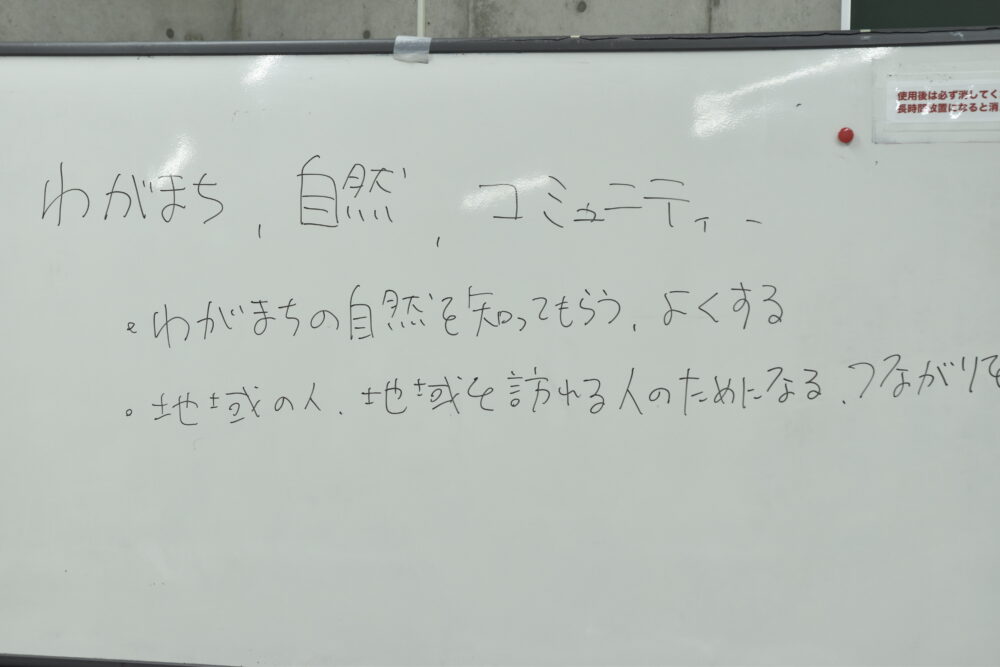 使用後は必ず消してく
長時間放置になると消
わがまち、自然、コミュニティー
・わがまちの自然を知ってもらう、よくする
・地域の人、地域を訪れる人のためになる、つながりを